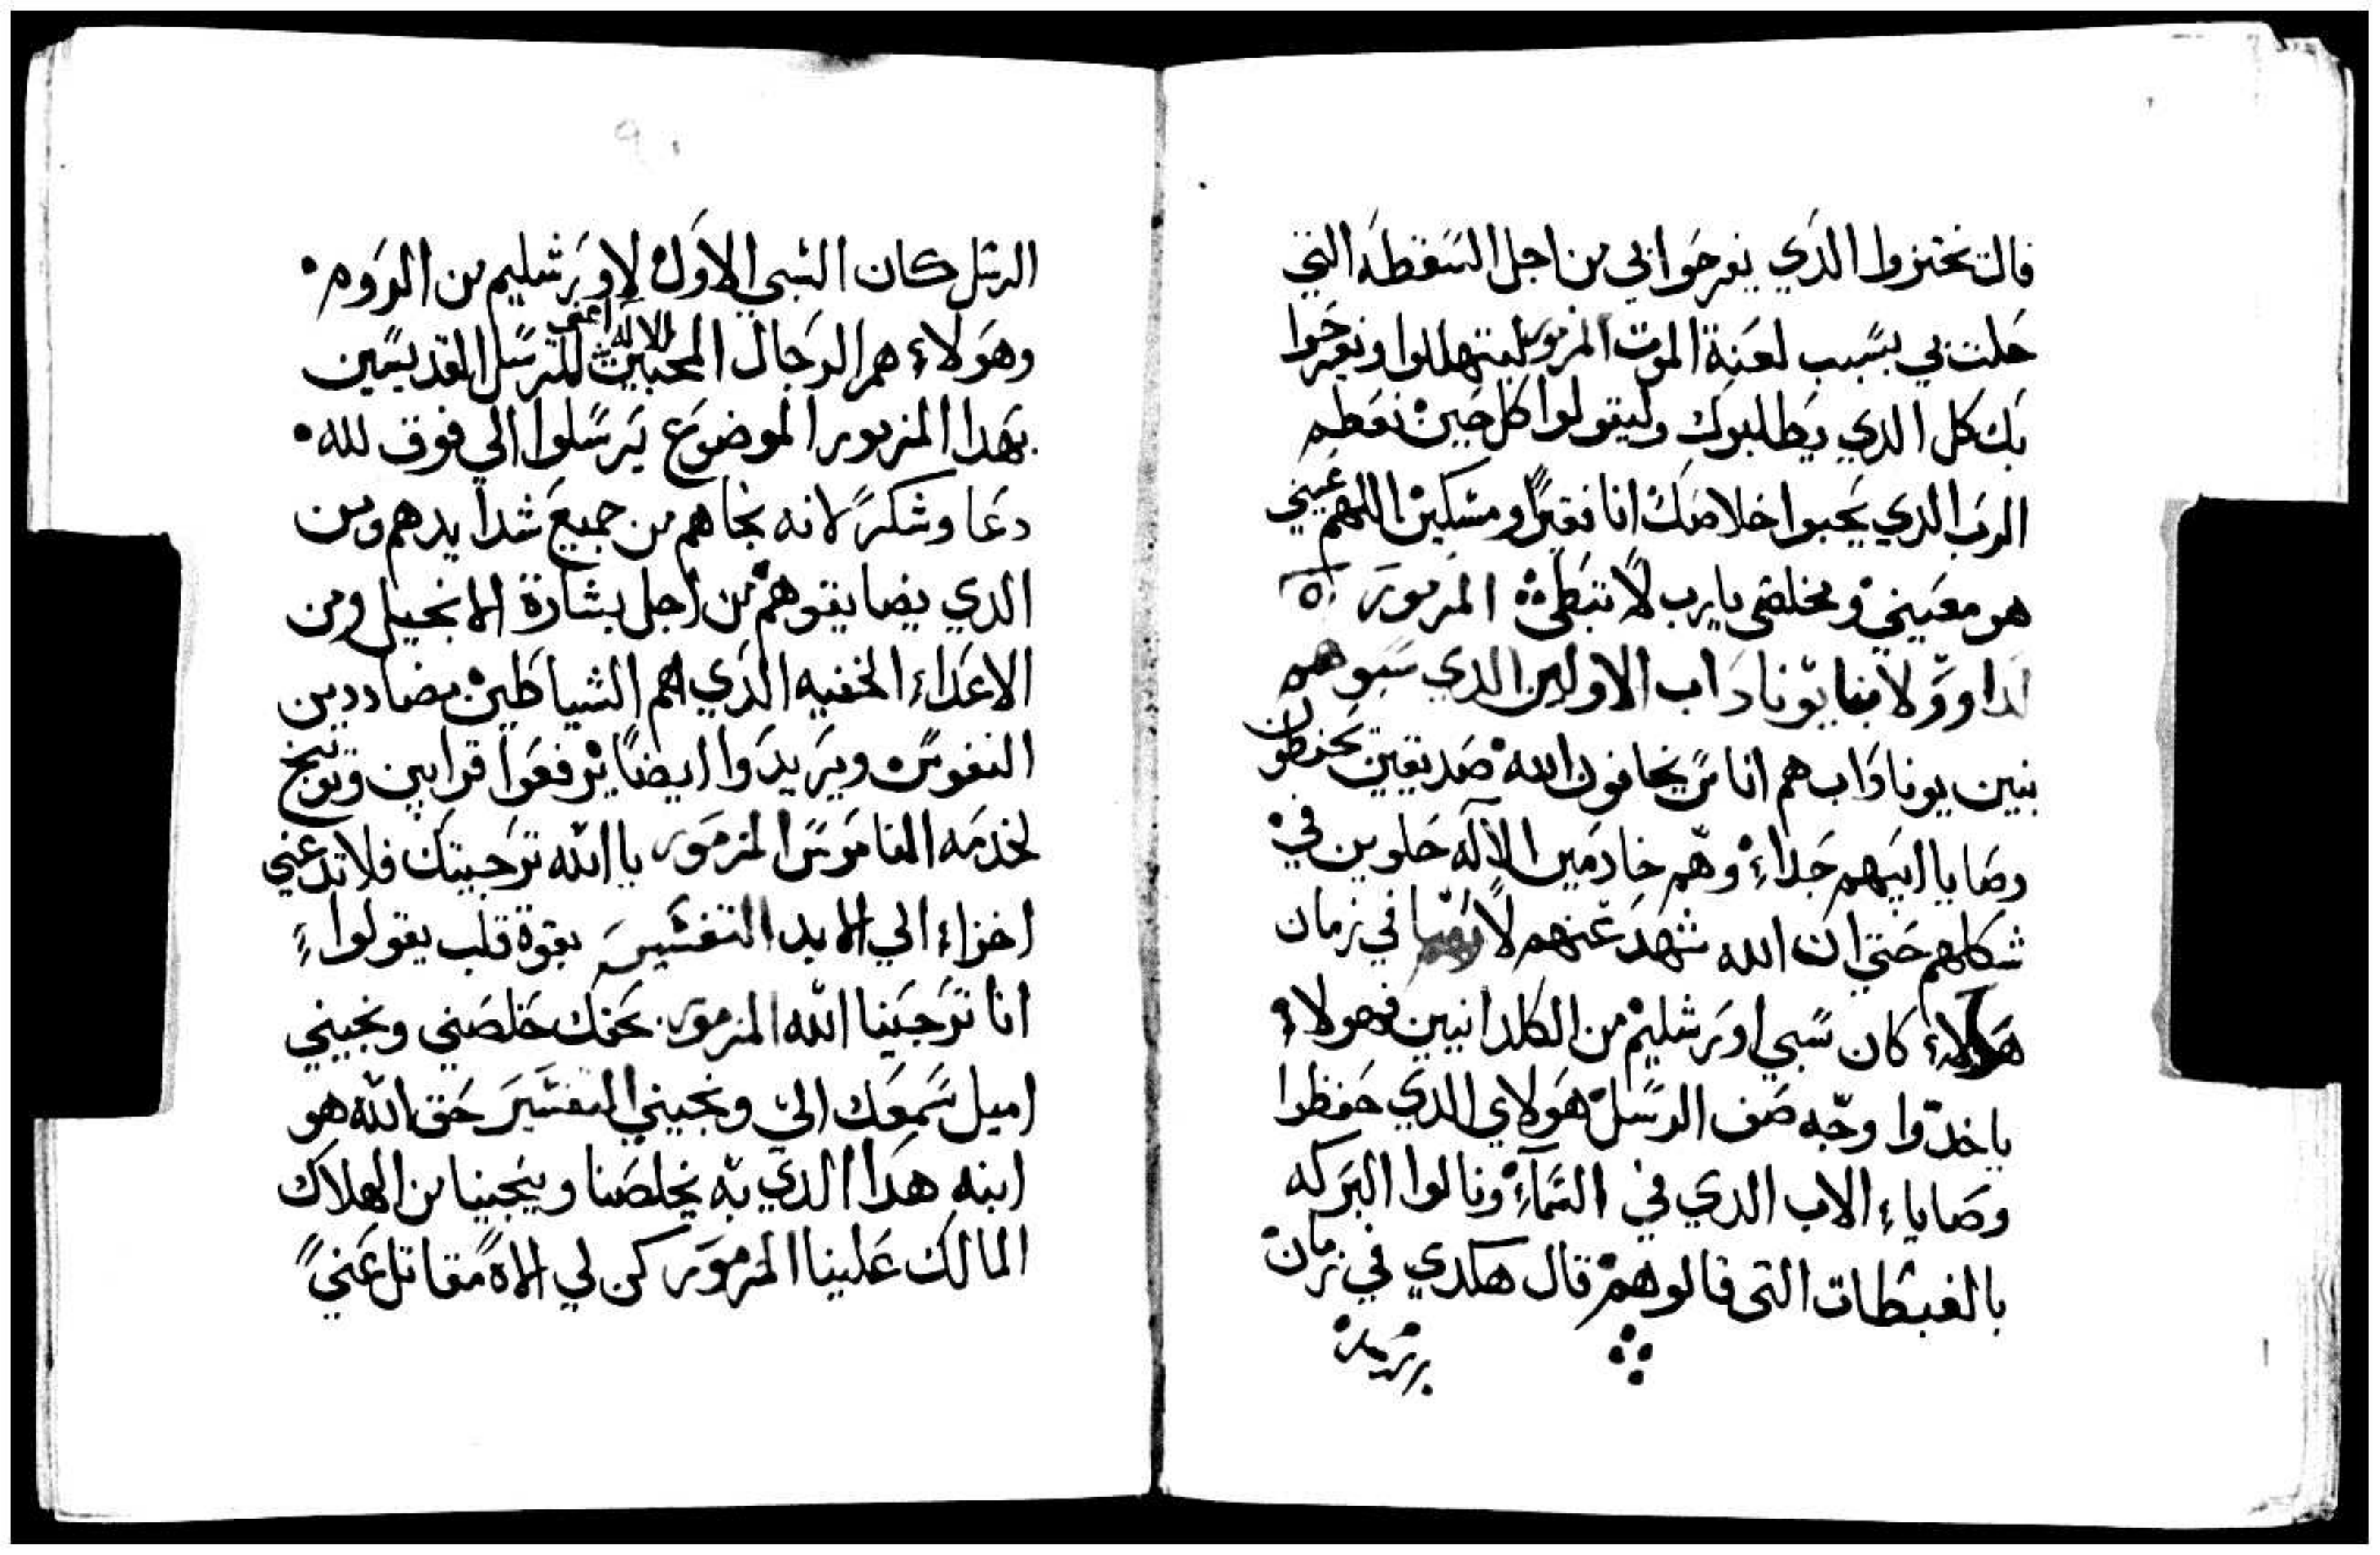 قالت تختزوا الذي يفرحوا بي من اجل السقطه التي
حلت بي بسبب لعنة الموت المزمور ليتهللوا ونفرحوا
بك كل الدي يطلبوك وليقولوا كل حين نعظم
الرب الدي يحبوا خلاصك انا فقيرًا ومسكين اللهم عيني
هو معيني ومخلصي يارب لا تبطئ المزمور
لداوود لابنا يوناداب الاولين الدي سبوهم
بنين يوناداب هم اناس يخافون الله صديقين يحفظون
وصايا ابيهم جداءً وهم خادمين الاله حلوين في
شكلهم حتى ان الله شهد عنهم لارميا في زمان
هولاء كان سبي اورشليم من الكلدانيين فهولاء
ياخدوا وجه صف الرسل هولاي الدي حفظوا
وصاياء الاب الدي في السماء ونالوا البركه
بالغبطات التي قالوهم قال هكدي في زمان
الرسل كان السبي الاول لاورشليم من الروم
وهولاء هم الرجال المحبين للاله اعني للرسل القديسين
بهدا المزمور الموضوع يرسلوا الي فوق لله
دعا وشكرً لانه نجاهم من جميع شدايدهم ومن
الدي يضايقوهم من اجل بشارة الانجيل ومن
الاعداء الخفيه الذي هم الشياطين مضاددين
النفوس ويريدوا ايضًا يرفعوا قرابين وتوبيخ
لخدمه الناموس المزمور يا الله ترجيتك فلا تدعني
اخزاء الي الابد التفسير بقوة قلب يقولواءً
انا ترجينا الله المزمور بحقك خلصني ونجيني
اميل سمعك الي ونجيني التفسير حق الله هو
ابنه هدا الدي به يخلصنا وينجينا من الهلاك
المالك علينا المزمور كن لي الاهً مقاتل عنيً